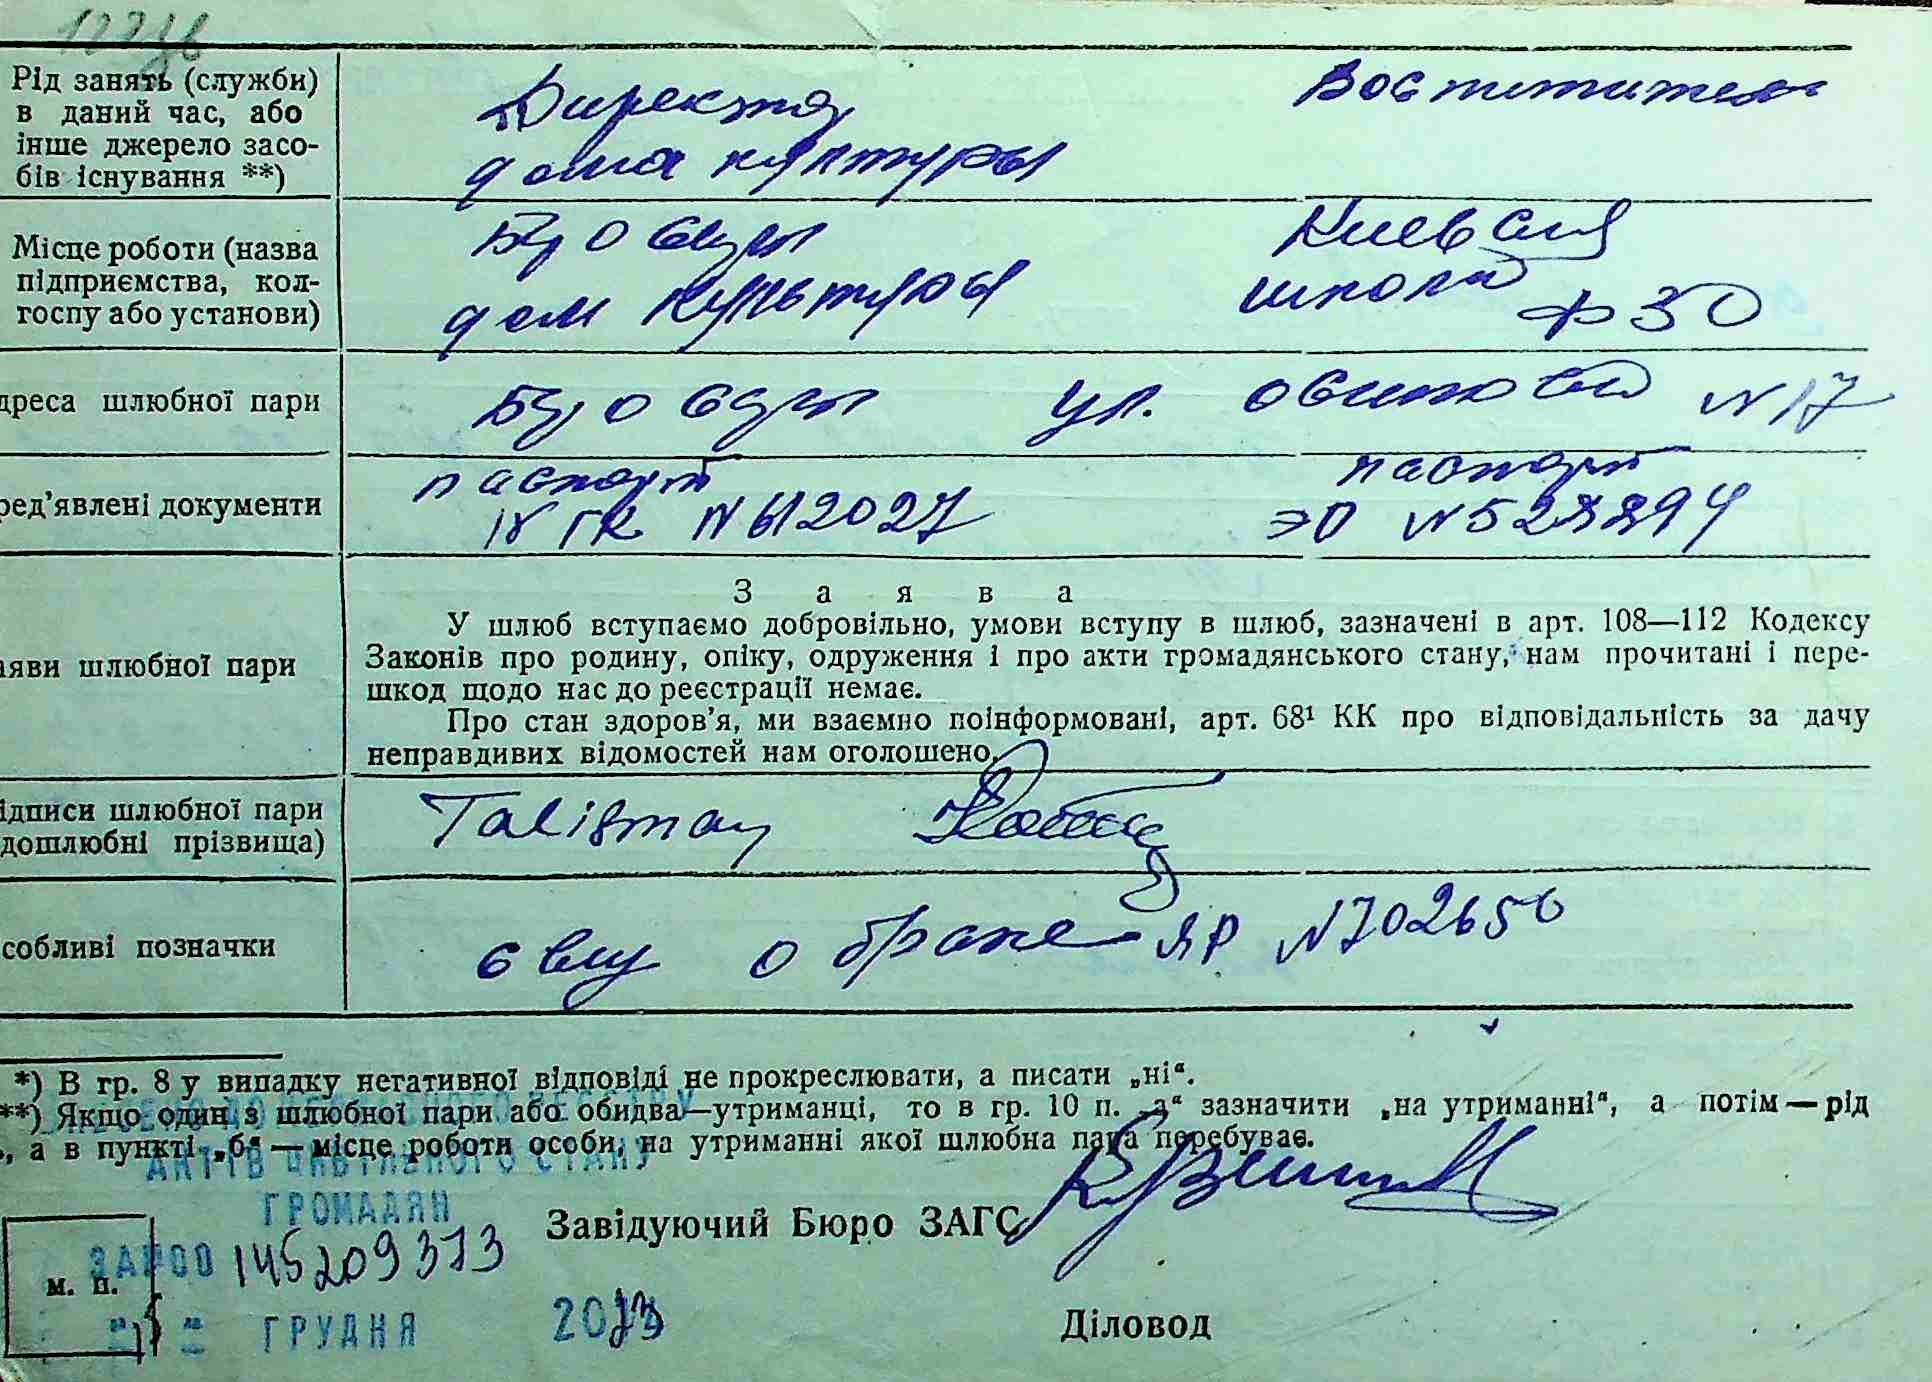 Рід занять (служби)
в даний час, або
інше джерело засо-
бів існування **)
Директор
дома культуры
Воспититель
Місце роботи (назва
підприємства, кол-
госпу або установи)
дом культуры
Киевская
школа ФЗО
дреса шлюбної пари
ул. №17
ред’явлені документи
паспорт
IV ГК N 612027
паспорт
ЭО №
З а я в а
У шлюб вступаємо добровільно, умови вступу в шлюб, зазначені в арт. 108—112 Кодексу
Законів про родину, опіку, одруження і про акти громадянського стану, нам прочитані і пере-
шкод щодо нас до реєстрації немає.
Про стан здоров’я, ми взаємно поінформовані, арт. 68¹ КК про відповідальність за дачу
неправдивих відомостей нам оголошено.
аяви шлюбної пари
ідписи шлюбної пари
дошлюбні прізвища)
Talisman
собливі позначки
о браке ЯР N702650
*) В гр. 8 у випадку негативної відповіді не прокреслювати, а писати „ні“.
**) Якщо один з шлюбної пари або обидва—утриманці, то в гр. 10 п. „а“ зазначити „на утриманні“, а потім—рід
, а в пункті „б“ — місце роботи особи, на утриманні якої шлюбна пара перебуває.
ДО РЕЄСТРУ
АКТІВ ЦИВІЛЬНОГО СТАНУ
ГРОМАДЯН
ЗА №00 145209373
м. п.
ГРУДНЯ 2013
Завідуючий Бюро ЗАГС
Діловод